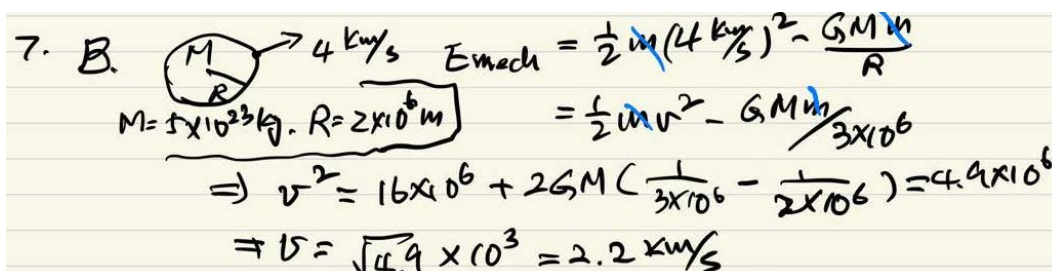 7. B. M R → 4 km/s Emech = 1/2 m(4 km/s)² - GMm/R
M = 5×10²³kg. R = 2×10⁶m = 1/2 mv² - GMm/3×10⁶
⇒ v² = 16×10⁶ + 2GM(1/3×10⁶ - 1/2×10⁶) = 4.9×10⁶
⇒ v = √4.9 ×10³ = 2.2 km/s